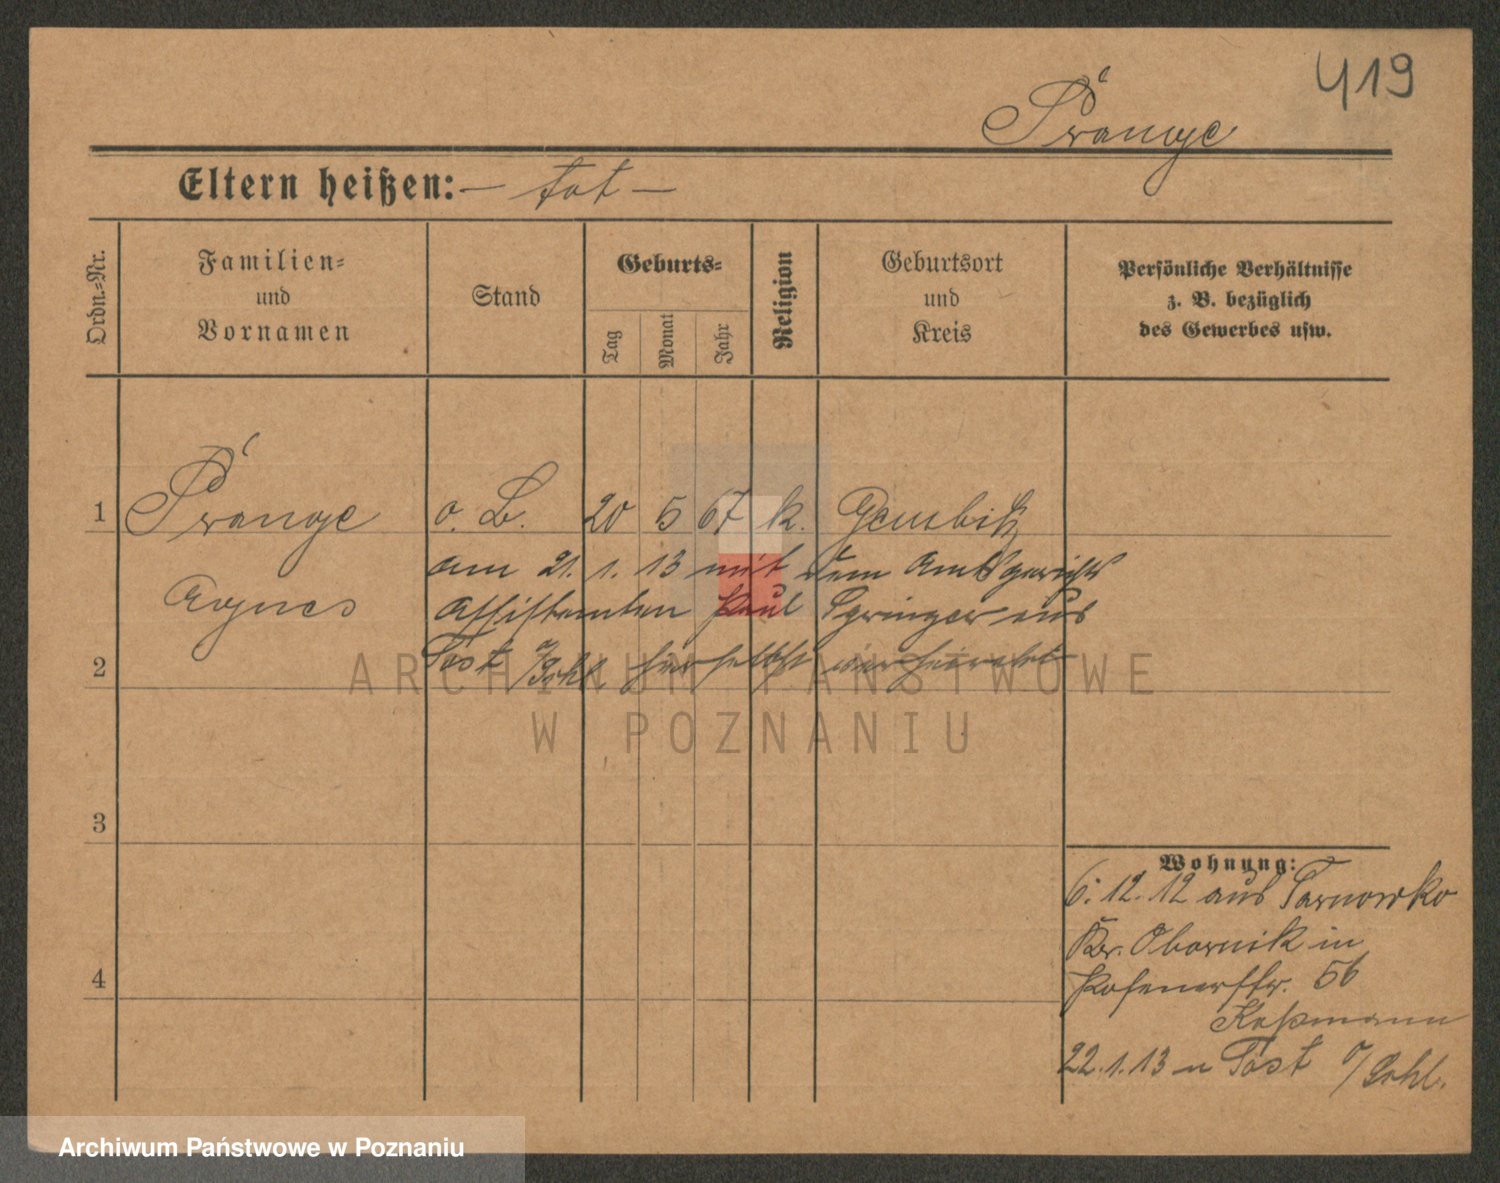 419
Prange
Eltern heißen: — tot —
Ordn.-Nr.
Familien-
und
Vornamen
Stand
Geburts-
Tag
Monat
Jahr
Religion
Geburtsort
und
Kreis
Persönliche Verhältnisse
z. B. bezüglich
des Gewerbes usw.
1 Prange o. B. 20 5 67 k. Gembitz
am 21. 1. 13 mit dem Amtsgerichts
Agnes Assistenten Paul Springer aus
2 Tost hierselbst verheiratet
ARCHIWUM PAŃSTWOWE
W POZNANIU
3
Wohnung:
6. 12. 12 aus Tarnowko
Kr. Obornik in
4 Posenerstr. 56
Koßmann
22. 1. 13 n Tost
Archiwum Państwowe w Poznaniu